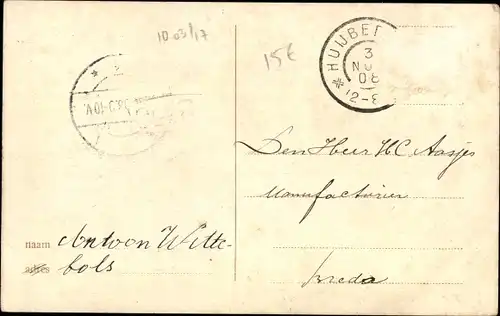 10-03/17
15€
HUIJBE
3
NO
08
12-8
Den Heer H C Aasjes
Manufacturier
Breda
naam Antoon Witte-
adres bols